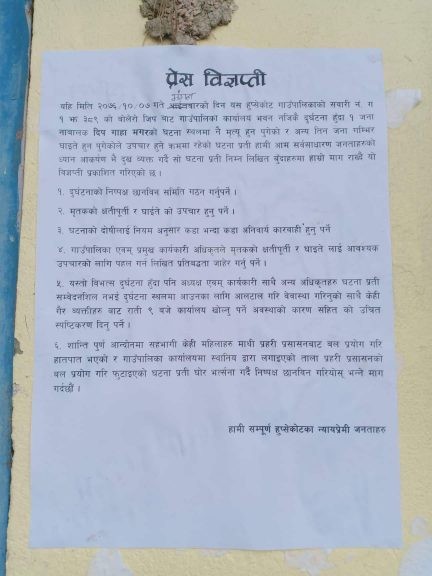 प्रेस विज्ञप्ती
यहि मिति २०७६/१०/०७ गते आईतबारको दिन यस हुप्सेकोट गाउँपालिकाको सवारी नं. ग
१ झ ३८९ को बोलेरो जिप बाट गाउँपालिकाको कार्यालय भवन नजिकै दुर्घटना हुँदा १ जना
नाबालक दिप गाहा मगरको घटना स्थलमा नै मृत्यू हुन पुगेको र अन्य तिन जना गम्भिर
घाइते हुन पुगेकोले उपचार हुने क्रममा रहेको घटना प्रती हामी आम सर्वसाधारण जनताहरुको
ध्यान आकर्षण भै दुख व्यक्त गर्दै सो घटना प्रती निम्न लिखित बुँदाहरुमा हाम्रो माग राख्दै यो
विज्ञप्ती प्रकाशित गरिएको छ ।
१. दुर्घटनाको निष्पक्ष छानविन समिति गठन गर्नुपर्ने ।
२. मृतकको क्षतीपूर्ती र घाईते को उपचार हुनु पर्ने ।
३. घटनाको दोषीलाई नियम अनुसार कडा भन्दा कडा अनिवार्य कारवाही हुनु पर्ने
४. गाउँपालिका एवम् प्रमुख कार्यकारी अधिकृतले मृतकको क्षतीपूर्ती र घाइते लाई आवश्यक
उपचारको लागि पहल गर्न लिखित प्रतिबद्धता जाहेर गर्नु पर्ने ।
५. यस्तो विभत्स दुर्घटना हुँदा पनि अध्यक्ष एबम् कार्यकारी साथै अन्य अधिकृतहरु घटना प्रती
सम्वेदनशिल नभई दुर्घटना स्थलमा आउनका लागि आलटाल गरि बेवास्था गरिनुको साथै केही
गैर व्यक्तीहरु बाट राती ९ बजे कार्यालय खोल्नु पर्ने अवस्थाको कारण सहित को उचित
स्पष्टिकरण दिनु पर्ने ।
६. शान्ति पुर्ण आन्दोनमा सहभागी केही महिलाहरु माथी प्रहरी प्रसासनबाट बल प्रयोग गरि
हातपात भएको र गाउँपालिका कार्यालयमा स्थानिय द्वारा लगाइएको ताला प्रहरी प्रसासनको
बल प्रयोग गरि फुटाइएको घटना प्रती घोर भर्त्सना गर्दै निष्पक्ष छानविन गरियोस् भन्ने माग
गर्दछौं ।
हामी सम्पूर्ण हुप्सेकोटका न्यायप्रेमी जनताहरु